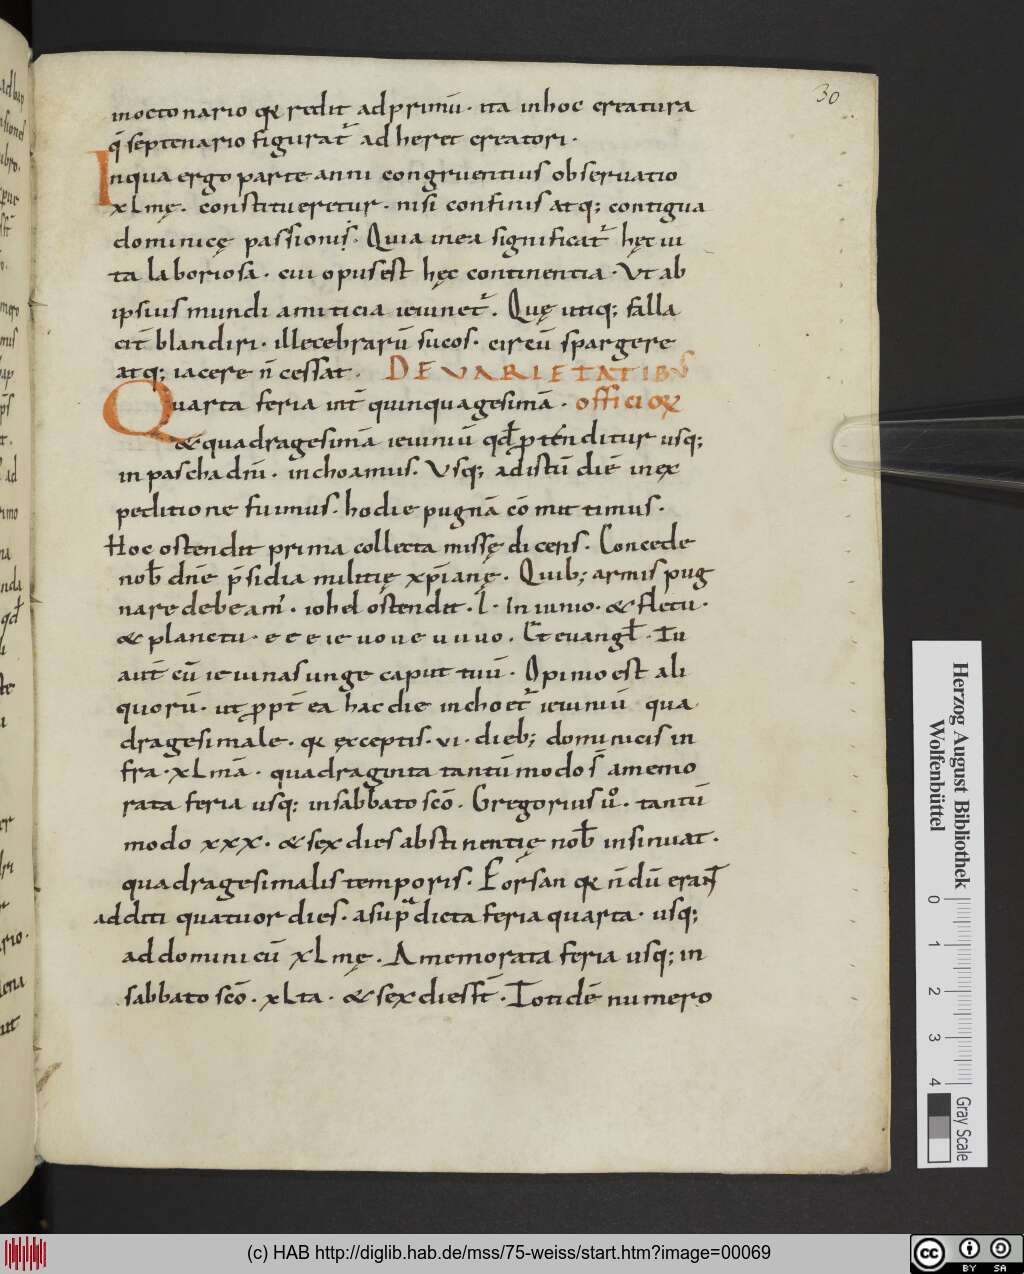 30
inoctonario qꝛ redit adprimū · ita inhoc creatura
q̄ septenario figurat̃ ad heret creatori ·
Inqua ergo parte anni congruentius observatio
xlmę · constitueretur · nisi confinis atq; contigua
dominicę passionis · Quia inea significat̃ hęc ui
ta laboriosa · cui opus est hęc continentia · Vt ab
ipsius mundi amiticia ieiunet̃ · Quę utiq; falla
cit̄ blandiri · illecebrarū sucos · circū spargere
atq; iacere n̄ cessat · DE VARIETATIBVS
Quarta feria int̄ quinquagesimā · officioꝝ
& quadragesimā ieiuniū qđ ptenditur usq;
in pascha dn̄i · inchoamus · Vsq; adistū diē inex
peditione fuimus · hodie pugnā cōmittimus ·
Hoc ostendit prima collecta missę dicens · Concede
nob̄ dn̄e p̄sidia militię xp̄ianę · Quib; armis pug
nare debeam̃ · iohel ostendit · l · In iunio · & fletu ·
& planctu · e e e ie uo u e u u uo · Et euangl̄ · Tu
aut̄ cū ieiunas unge caput tuū · Opinio est ali
quorū · ut ppt̄ ea hac die inchoet̃ ieiuniū qua
dragesimale · qꝛ exceptis · vi · dieb; dominicis in
fra · xlmā · quadraginta tantūmodo s̄ amemo
rata feria usq; insabbato scō · Gregorius uͦ · tantū
modo xxx · & sex dies abstinentię nob̄ insinuat ·
quadragesimalis temporis · Forsan qꝛ n̄dū erant
additi quatuor dies · asup̄dicta feria quarta · usq;
addominicū xlmę · A memorata feria usq; in
sabbato scō · xlta · & sex dies st̄ · Totidē numero
Herzog August Bibliothek
Wolfenbüttel
0 1 2 3 4
Gray Scale
(c) HAB http://diglib.hab.de/mss/75-weiss/start.htm?image=00069
cc BY SA